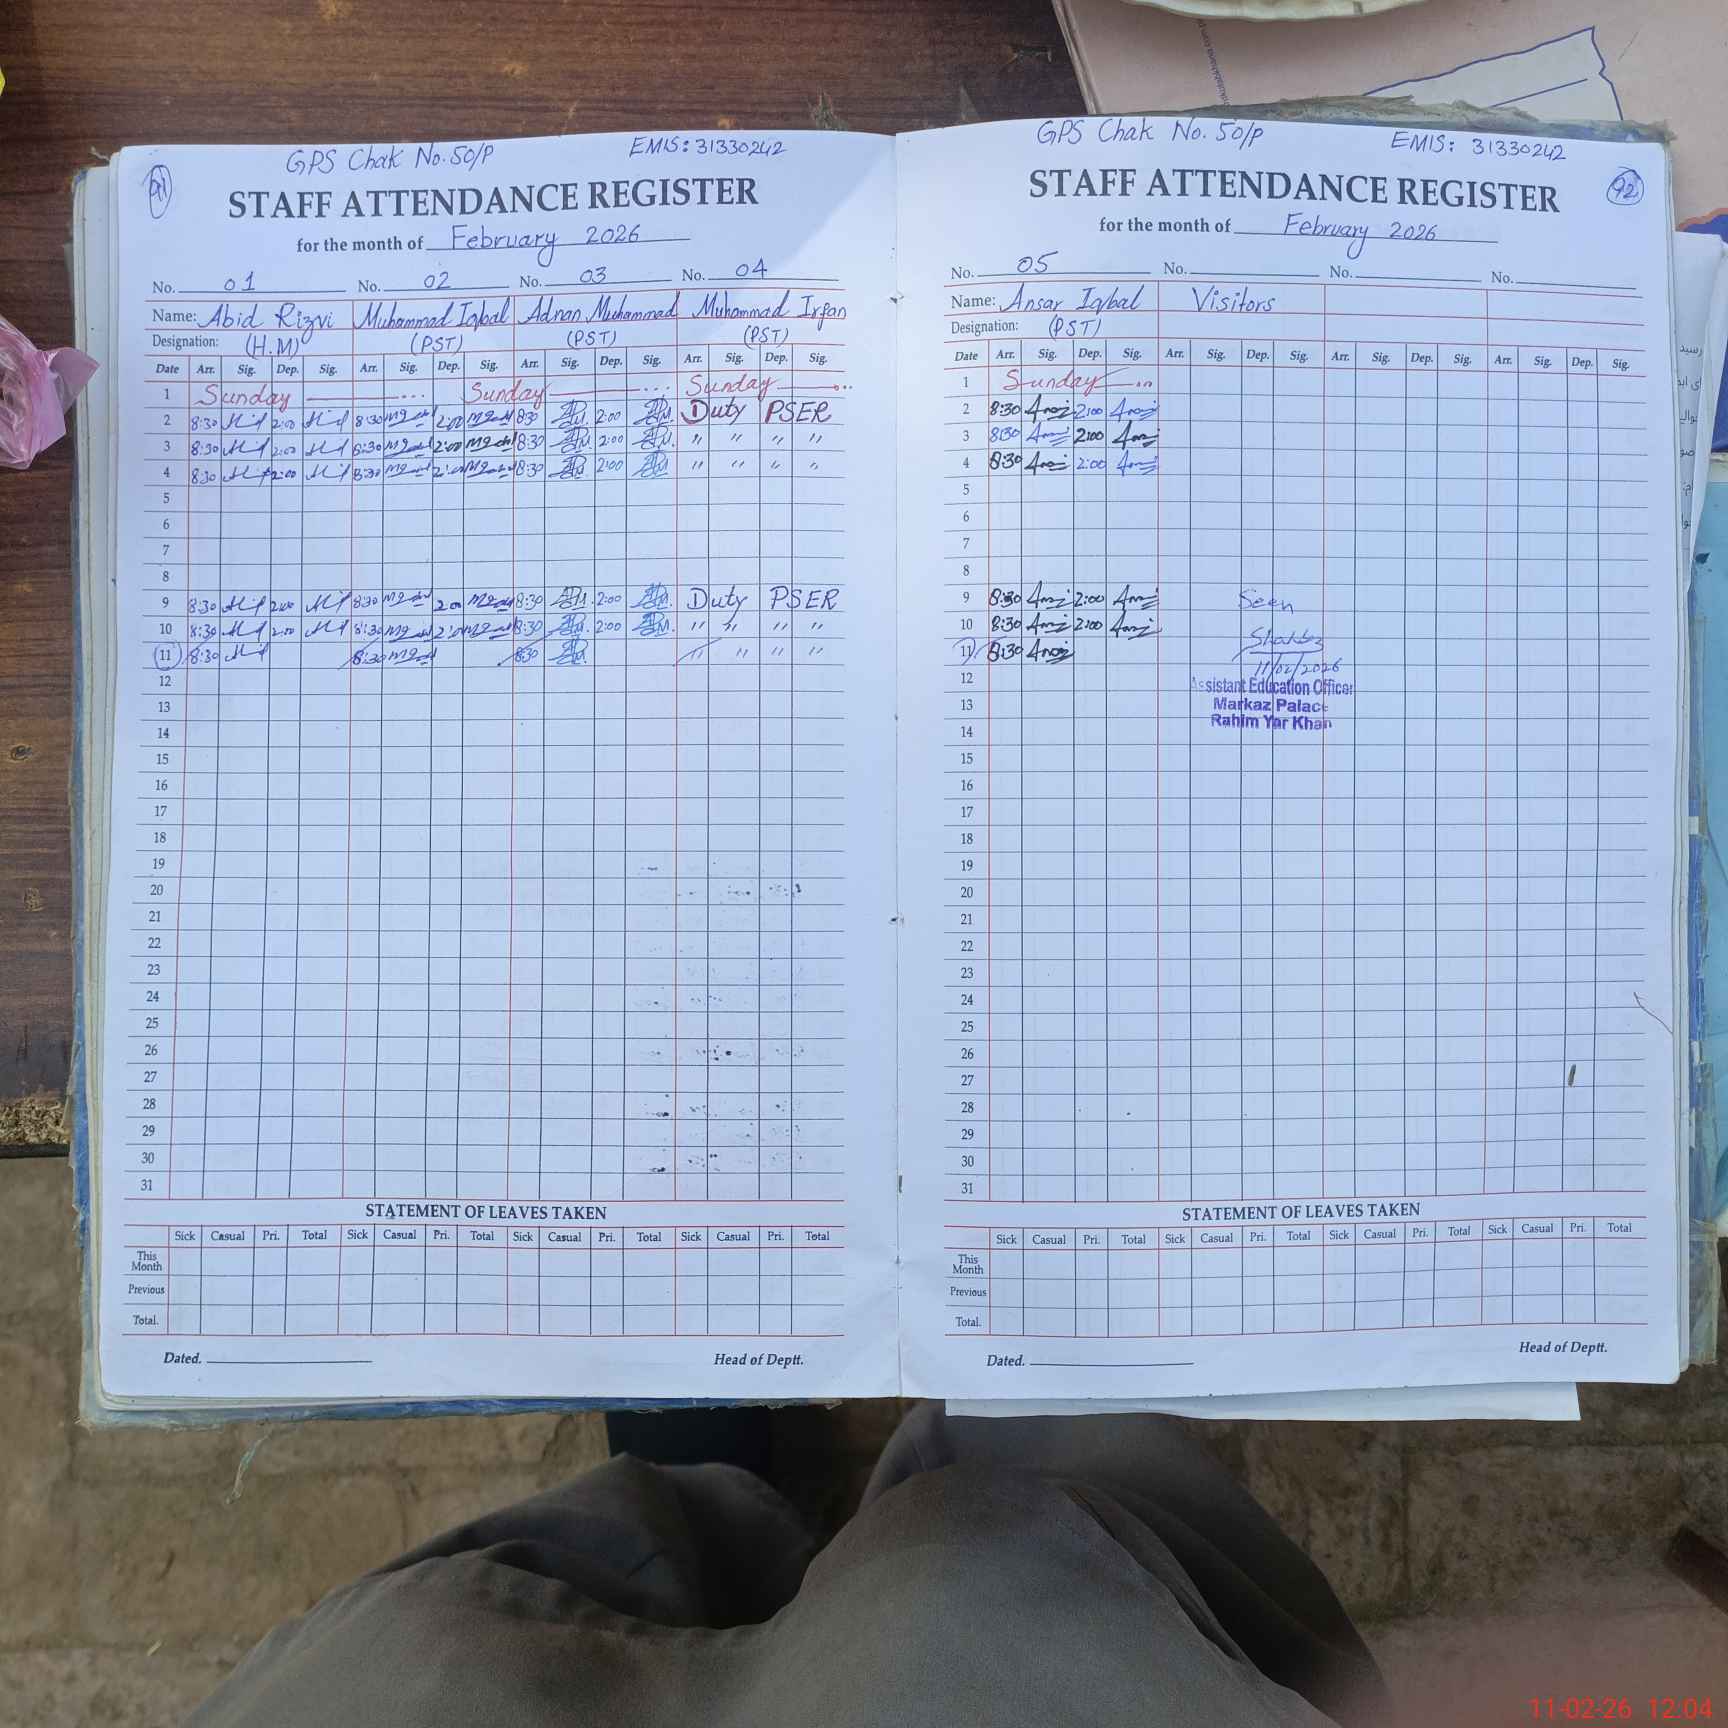 GPS Chak No. 50/P EMIS: 31330242
91
STAFF ATTENDANCE REGISTER
for the month of February 2026
No. 01 No. 02 No. 03 No. 04
Name: Abid Rizvi Muhammad Iqbal Adnan Muhammad Muhammad Irfan
Designation: (H.M) (PST) (PST) (PST)
Date Arr. Sig. Dep. Sig. Arr. Sig. Dep. Sig. Arr. Sig. Dep. Sig. Arr. Sig. Dep. Sig.
1 Sunday Sunday Sunday
2 8:30 2:00 8:30 2:00 8:30 2:00 Duty PSER
3 8:30 2:00 8:30 2:00 8:30 2:00 " " " "
4 8:30 2:00 8:30 2:00 8:30 2:00 " " " "
5
6
7
8
9 8:30 2:00 8:30 2:00 8:30 2:00 Duty PSER
10 8:30 2:00 8:30 2:00 8:30 2:00 " " " "
11 8:30 8:30 8:30 " " " "
12
13
14
15
16
17
18
19
20
21
22
23
24
25
26
27
28
29
30
31
STATEMENT OF LEAVES TAKEN
Sick Casual Pri. Total Sick Casual Pri. Total Sick Casual Pri. Total Sick Casual Pri. Total
This Month
Previous
Total.
Dated. Head of Deptt.
GPS Chak No. 50/P EMIS: 31330242
92
STAFF ATTENDANCE REGISTER
for the month of February 2026
No. 05 No. No. No.
Name: Ansar Iqbal Visitors
Designation: (PST)
Date Arr. Sig. Dep. Sig. Arr. Sig. Dep. Sig. Arr. Sig. Dep. Sig. Arr. Sig. Dep. Sig.
1 Sunday
2 8:30 2:00
3 8:30 2:00
4 8:30 2:00
5
6
7
8
9 8:30 2:00 Seen
10 8:30 2:00
11 8:30 11/02/2026
12 Assistant Education Officer
13 Markaz Palace
14 Rahim Yar Khan
15
16
17
18
19
20
21
22
23
24
25
26
27
28
29
30
31
STATEMENT OF LEAVES TAKEN
Sick Casual Pri. Total Sick Casual Pri. Total Sick Casual Pri. Total Sick Casual Pri. Total
This Month
Previous
Total.
Dated. Head of Deptt.
11-02-26 12:04